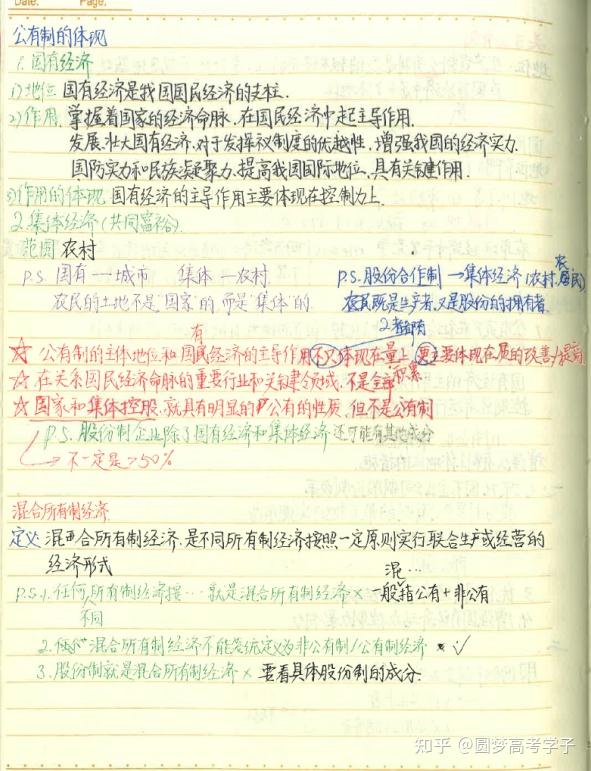 Date: Page:
公有制的体现
1.国有经济
1)地位 国有经济是我国国民经济的支柱.
2)作用. 掌握着国家的经济命脉.在国民经济中起主导作用.
发展.壮大国有经济.对于发挥 制度的优越性.增强我国的经济实力.
国防实力和民族凝聚力.提高我国国际地位.具有关键作用.
3)作用的体现.国有经济的主导作用主要体现在控制力上.
2.集体经济(共同富裕).
范围 农村
P.S. 国有一城市 集体一农村. P.S.股份合作制→集体经济(农村.农 居民)
农民的土地不是"国家"的 而是"集体"的 农民既是生产者.又是股份的拥有者.
2者都有
有
☆ 公有制的主体地位和国民经济的主导作用不只体现在量上 更主要体现在质的改善/提高
☆ 在关系国民经济命脉的重要行业和关键领域.不是全部 积累
☆ 国家和集体控股.就具有明显的 公有的性质.但不是公有制
P.S. 股份制企业除了国有经济和集体经济 还可能有其他成分
→不一定是>50%
混合所有制经济
定义 混合所有制经济.是不同所有制经济按照一定原则实行联合生产或经营的
经济形式
混…
P.S.1.任何所有制经济按…就是混合所有制经济× 一般指公有+非公有
不同
2. 混合所有制经济不能笼统定义为非公有制/公有制经济 √
3.股份制就是混合所有制经济× 要看具体股份制的成分.
知乎 @圆梦高考学子